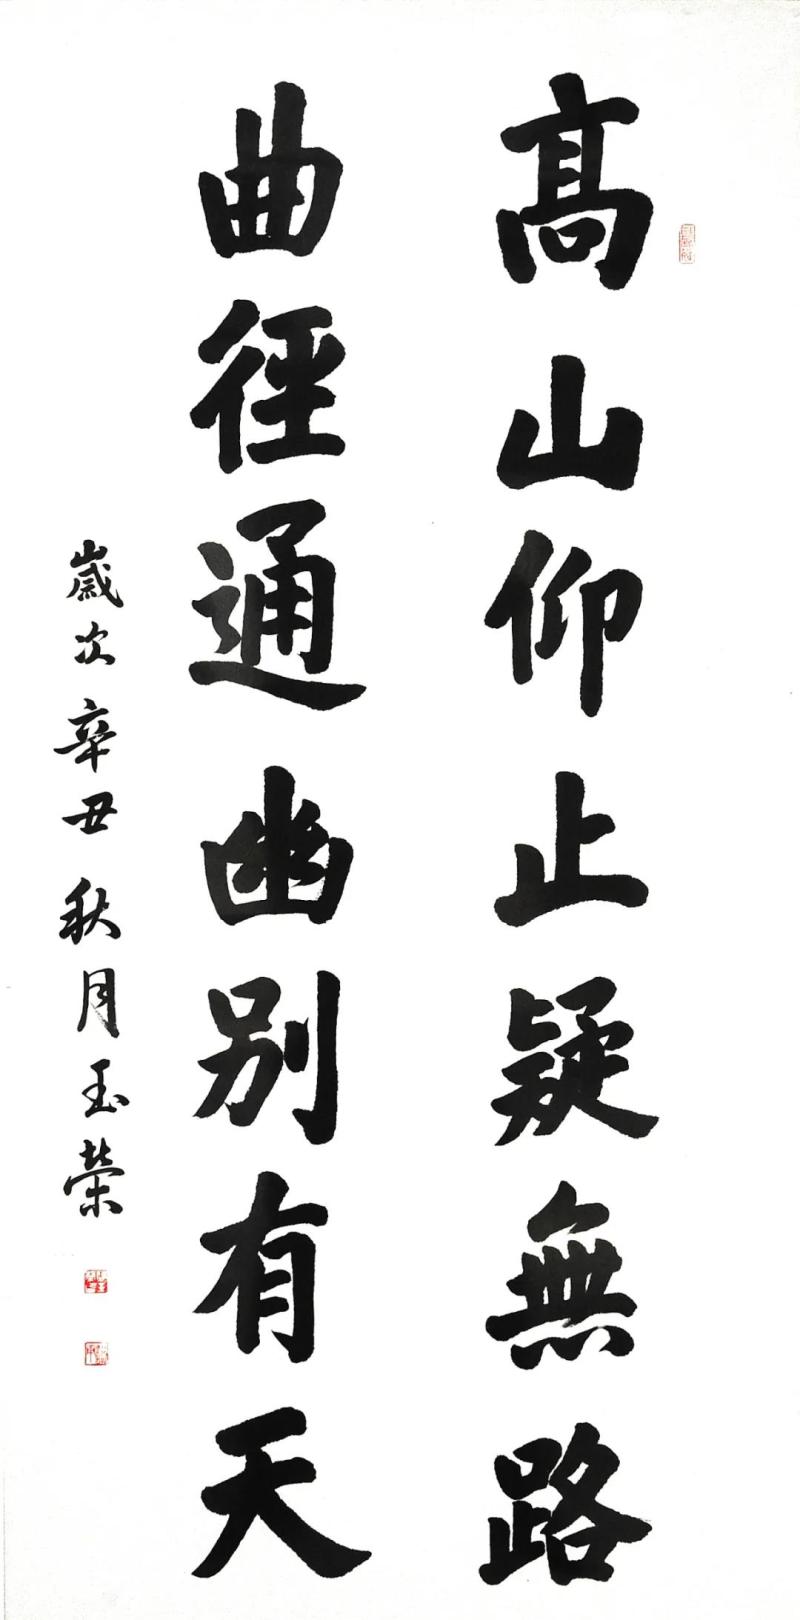 高山仰止疑無路
曲徑通幽別有天
歲次辛丑秋月玉榮